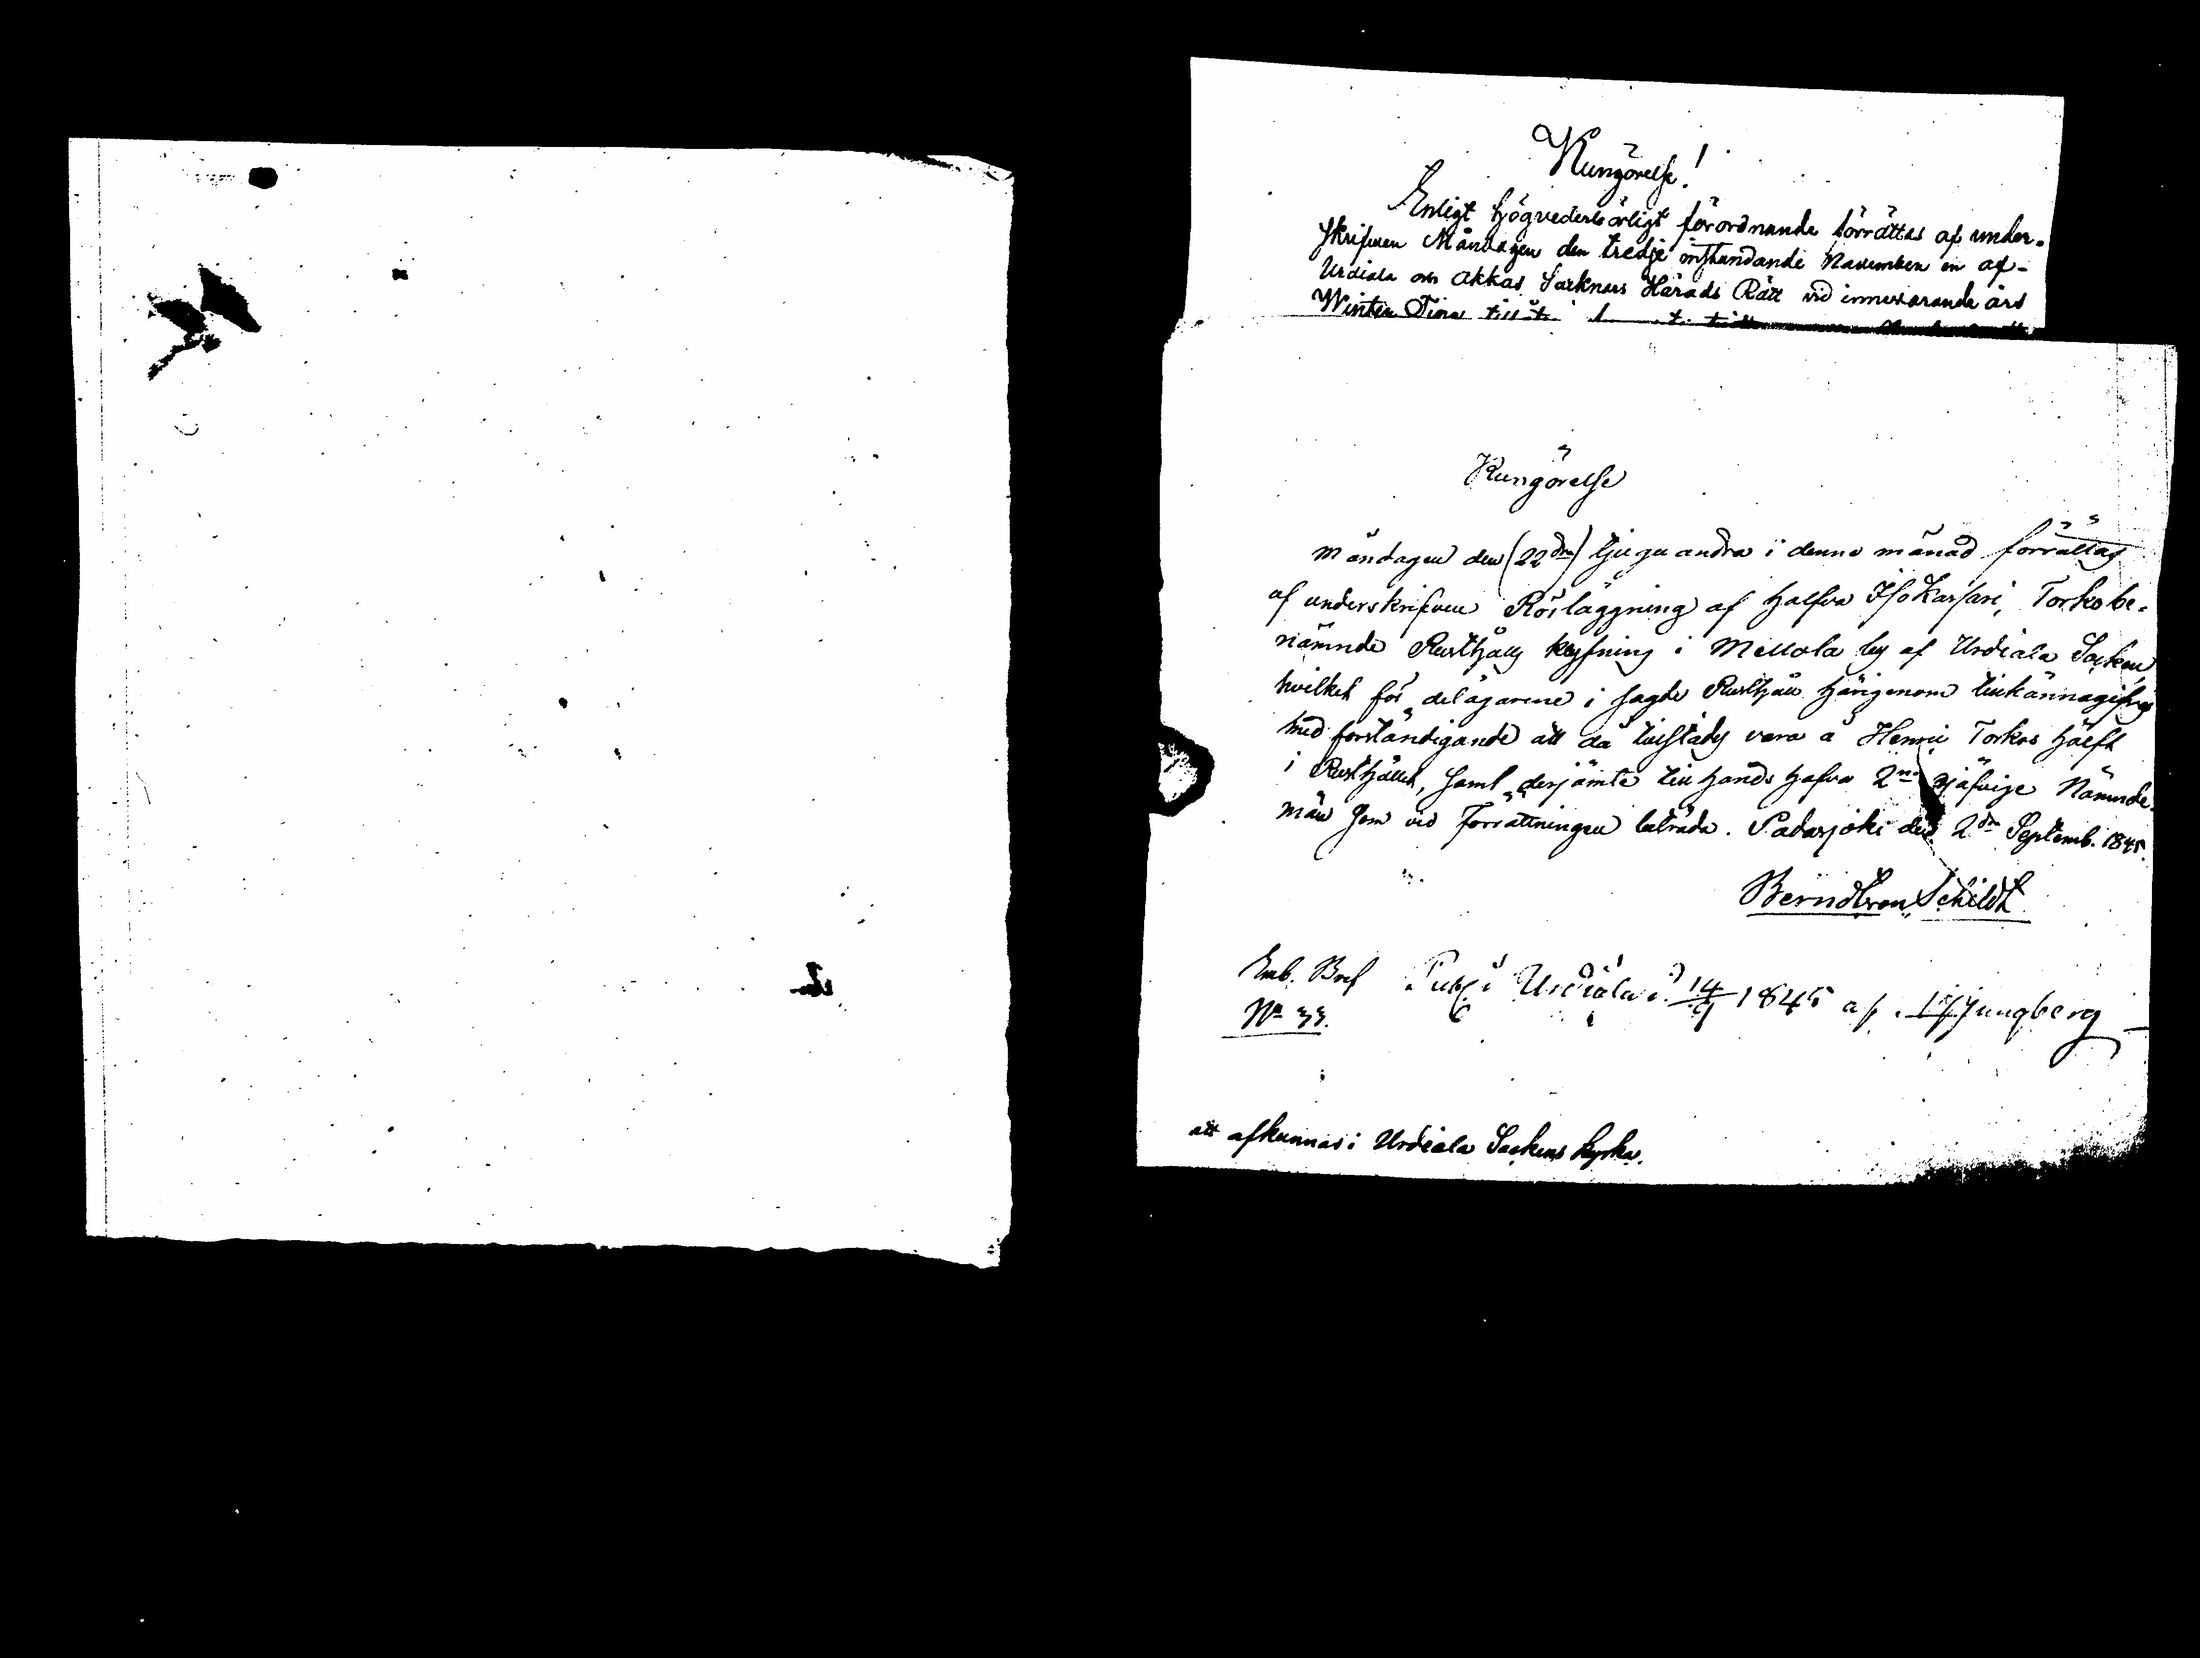 Kungörelse!
Enligt högvederbörligt förordnande förrättas af under-
skrifven Måndagen den tredje instundande November en af-
Urdiala och Akkas Socknars Härads Rätt vid innevarande års
Winter Ting
Kungörelse
Måndagen den (22dra) tjugu andra i denne månad förrättas
af underskrifven Rösläggning af halfva Isokarsari, Torko be-
nämnde Rusthålls klyfning i Mellola by af Urdiala Socken
hvilket för delägarene i sagde Rusthåll härigenom tillkännagifves
med förständigande att då tillstädes vara å Henric Torkos hälft
i Rusthållet, samt derjämte till hands hafva 2ne ojäfvige Nämnde-
män som vid Förrättningen biträda. Padasjoki den 2dra Septemb. 1845.
Berndt von Schildt
Emb. Bref Publ. i Urdiala d. 14/9 1845 af Ljungberg
No 33.
att afkunnas i Urdiala Sockens kyrka.